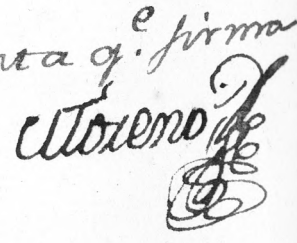 ta q.e firma
Moreno